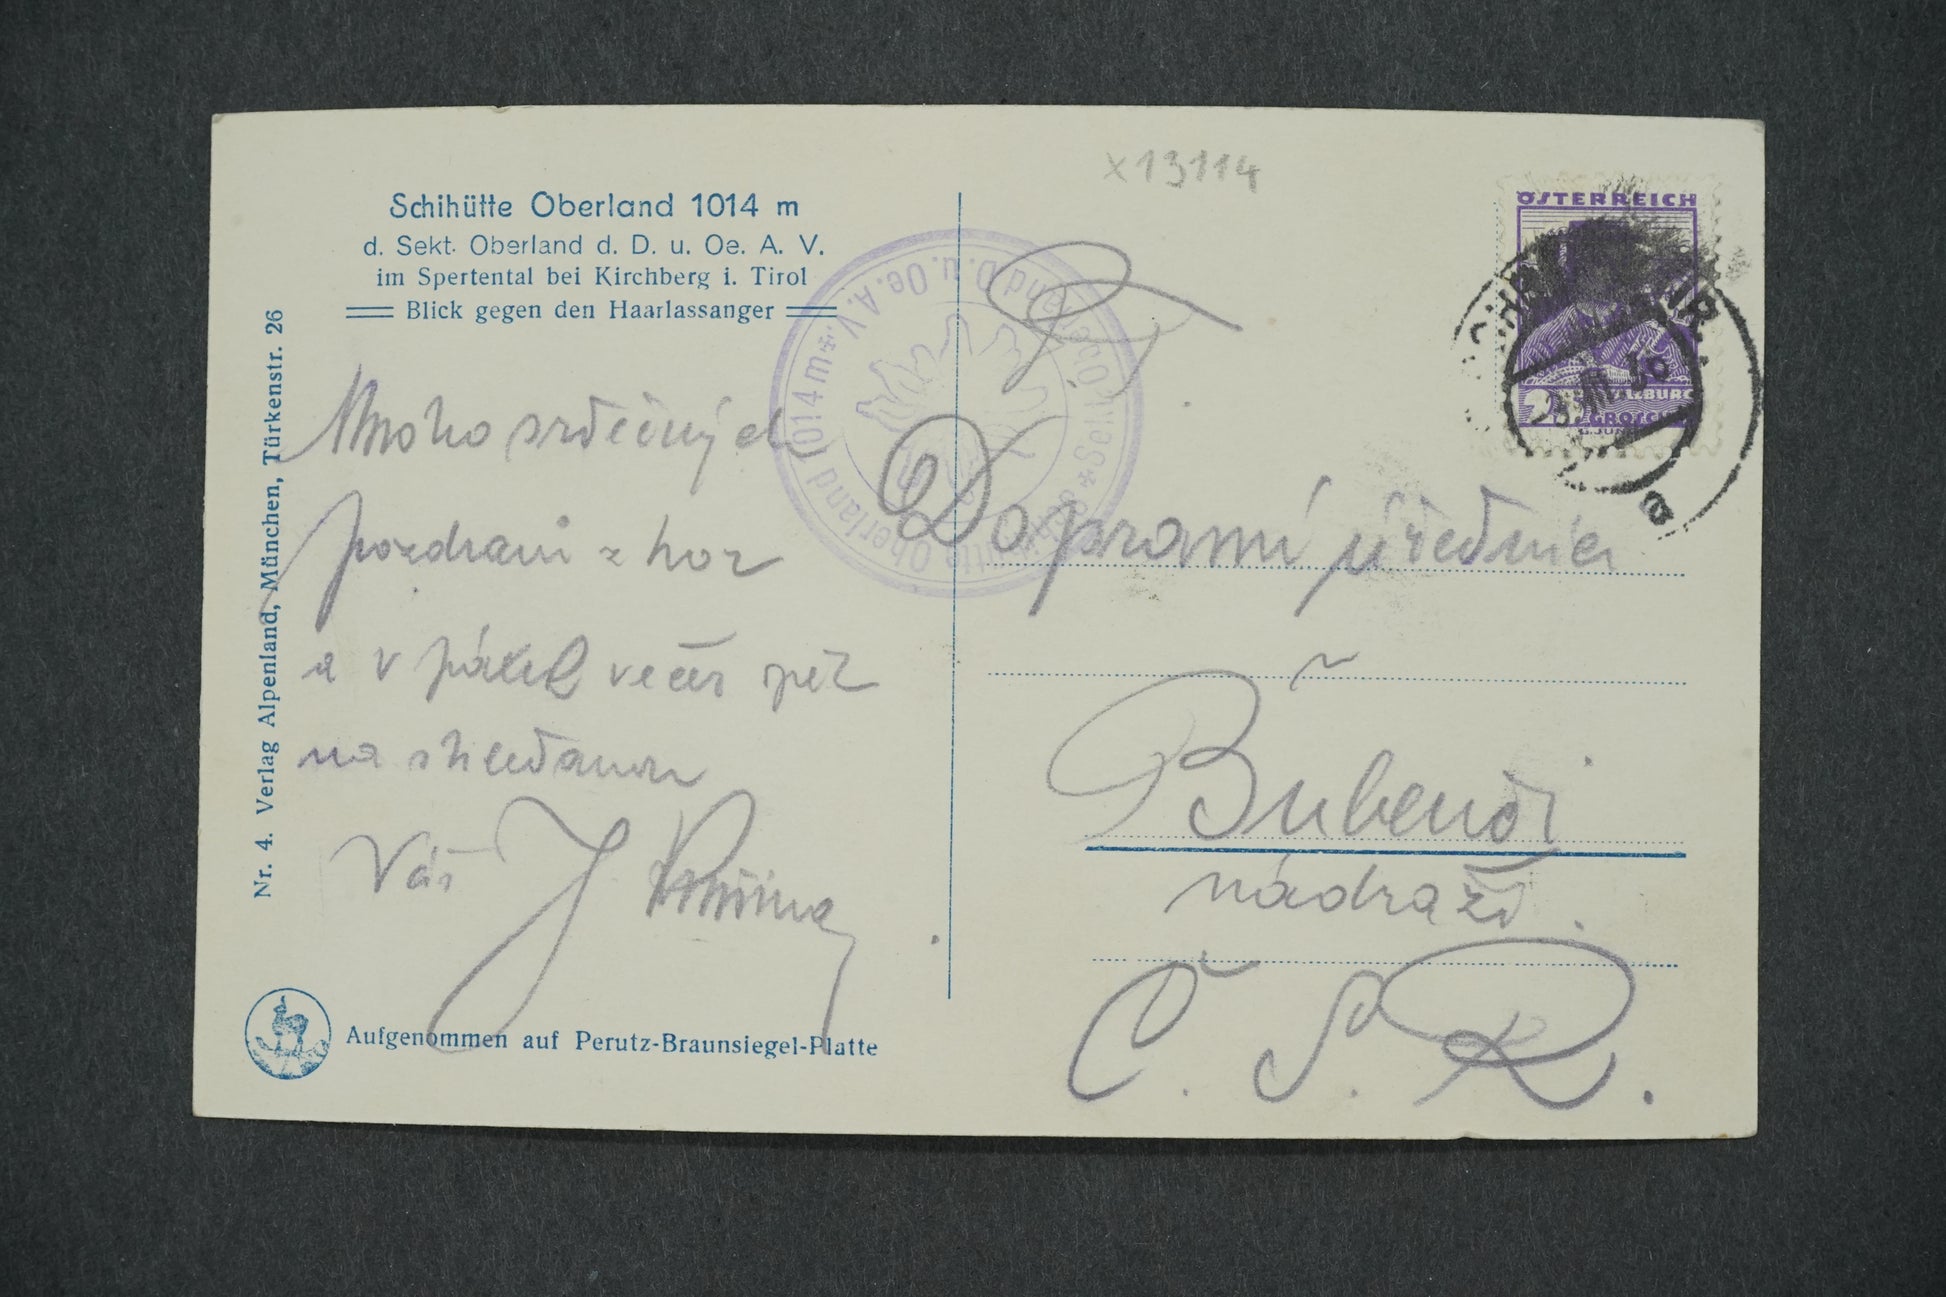 x13114
Schihütte Oberland 1014 m
d. Sekt. Oberland d. D. u. Oe. A. V.
im Spertental bei Kirchberg i. Tirol
Blick gegen den Haarlassanger
Mnoho srdečných
pozdravů z hor
a v pátek večer zpět
na shledanou
Váš J.
Nr. 4. Verlag Alpenland, München, Türkenstr. 26
Aufgenommen auf Perutz-Braunsiegel-Platte
Schihütte Oberland 1014 m * Sekt. Oberland D. u. Oe. A. V. *
ÖSTERREICH
SALZBURG
GROSCHEN
VIII 36
a
Dopravní úřednic
v
Bubenči
nádraží.
Č. S. R.